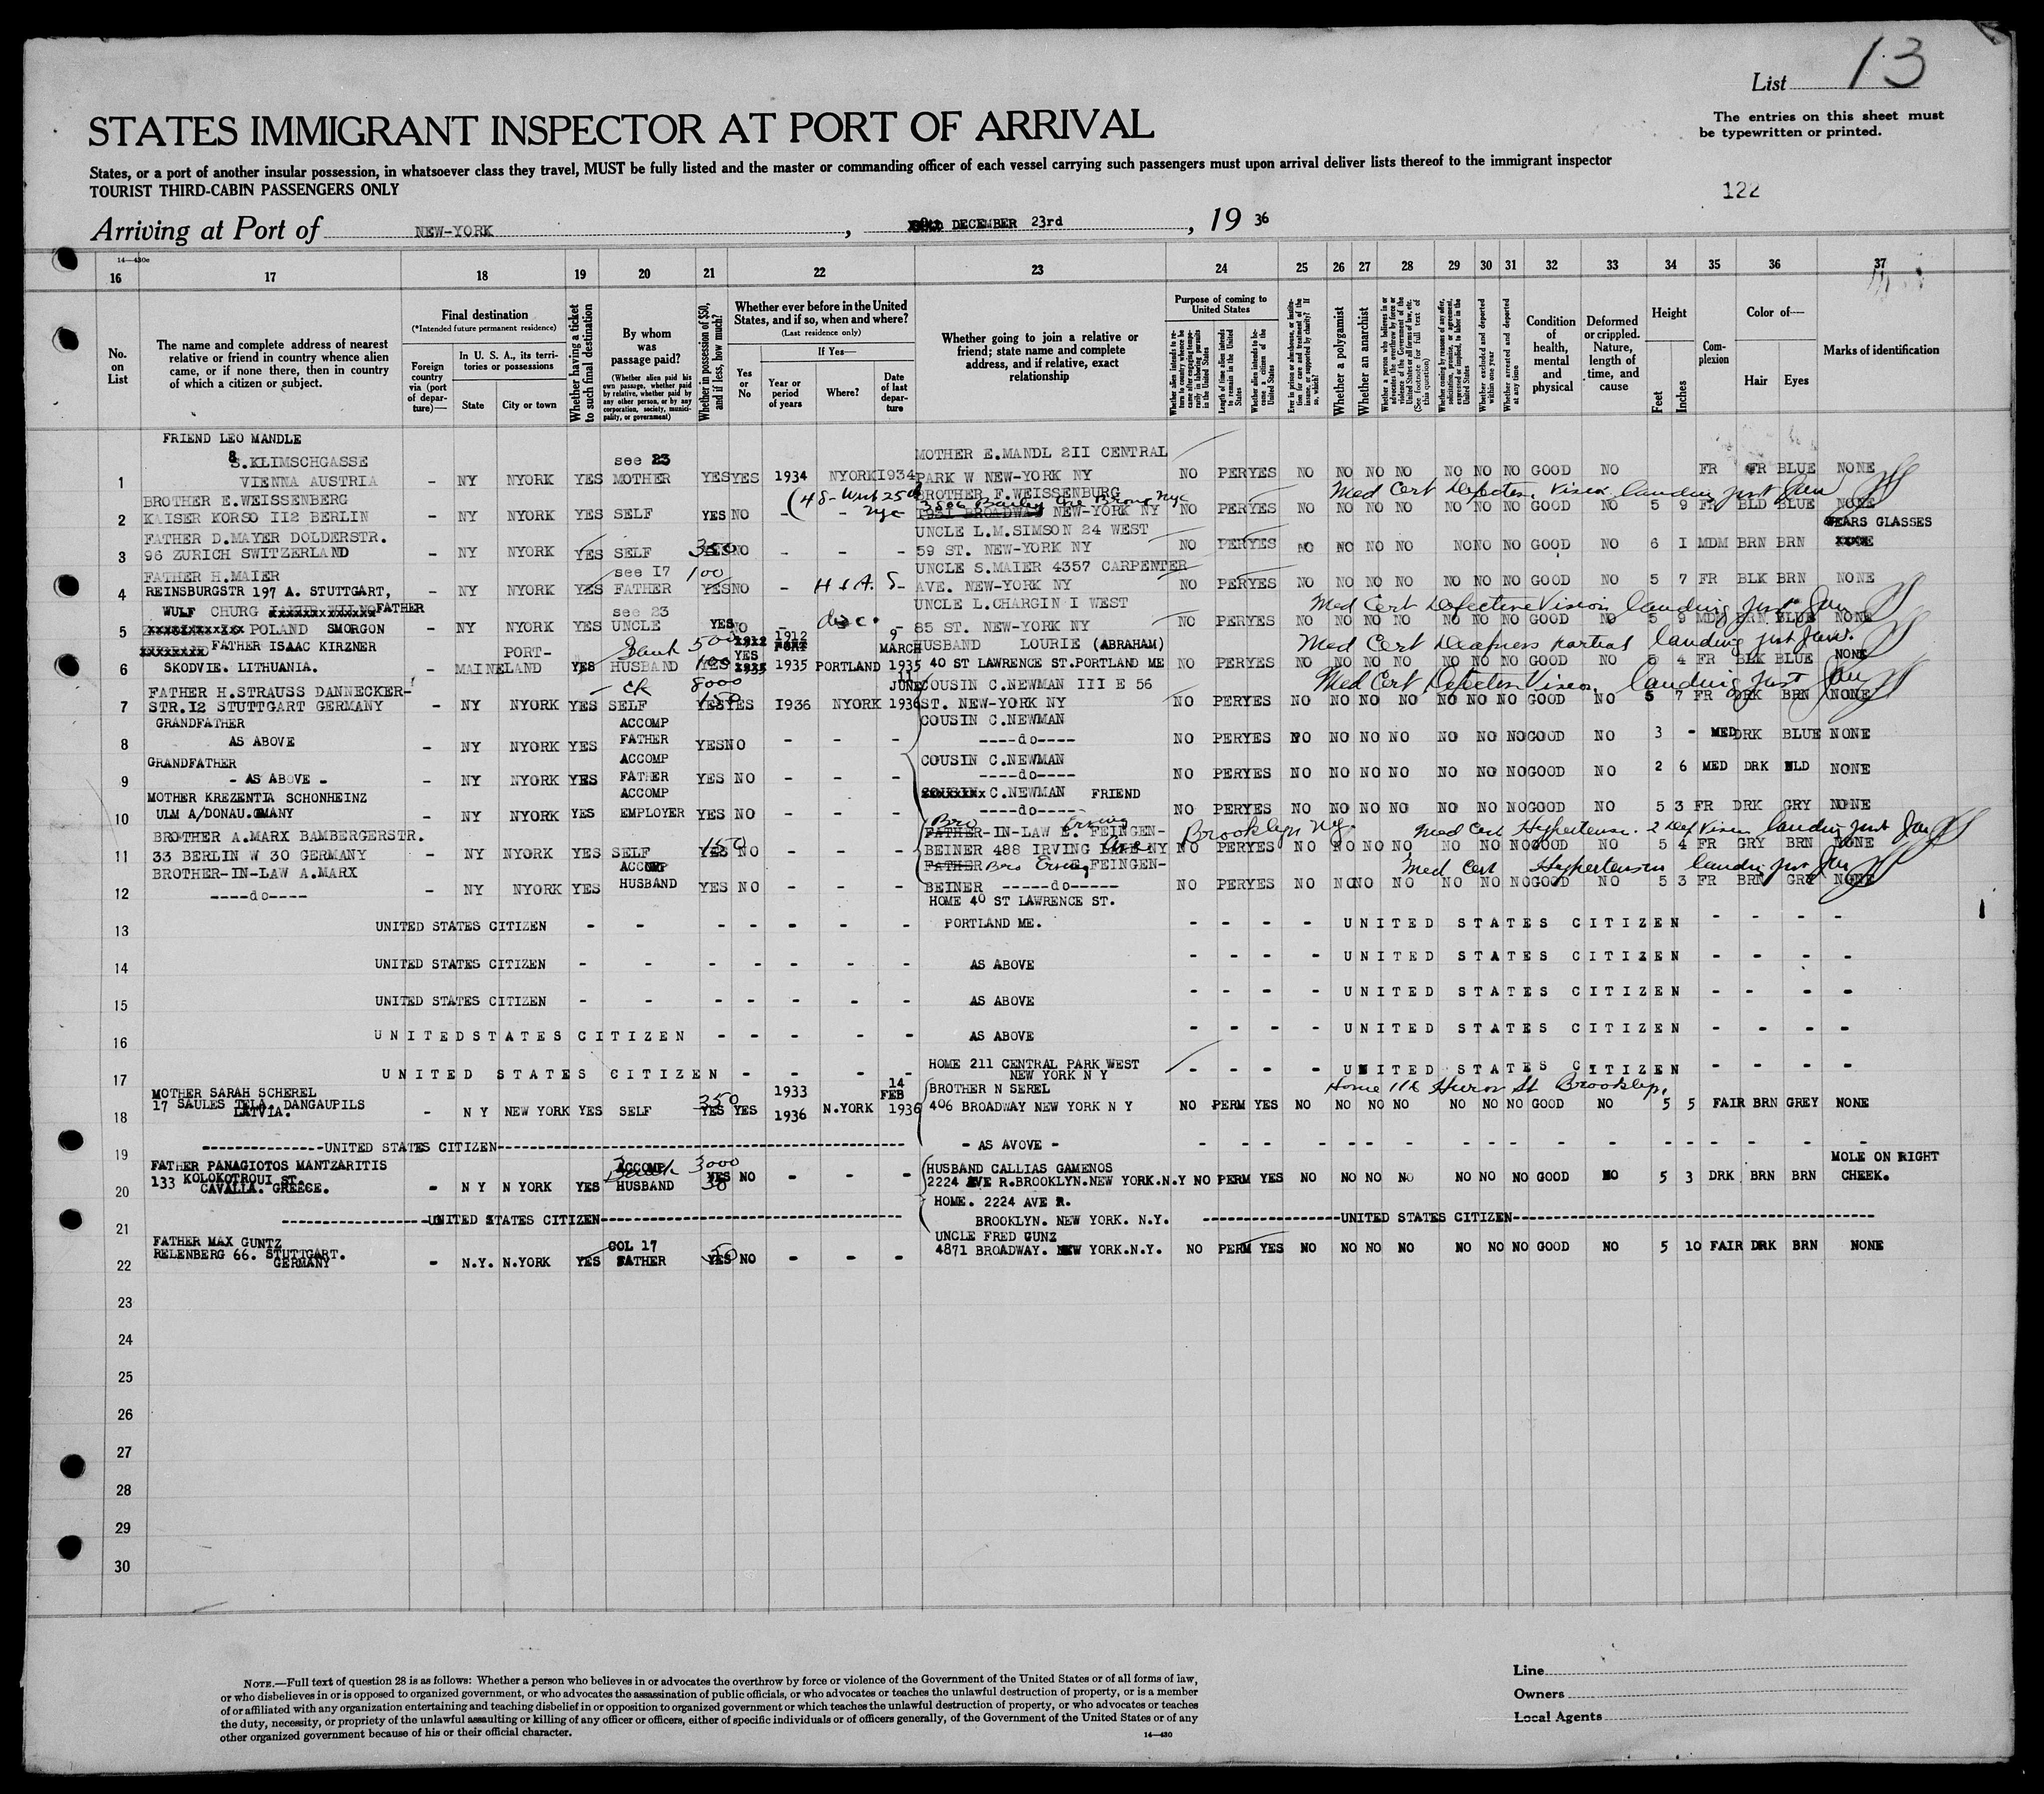 List 13
The entries on this sheet must
be typewritten or printed.
STATES IMMIGRANT INSPECTOR AT PORT OF ARRIVAL
States, or a port of another insular possession, in whatsoever class they travel, MUST be fully listed and the master or commanding officer of each vessel carrying such passengers must upon arrival deliver lists thereof to the immigrant inspector
TOURIST THIRD-CABIN PASSENGERS ONLY
122
Arriving at Port of NEW-YORK, DECEMBER 23rd, 19 36
14—430e
16 17 18 19 20 21 22 23 24 25 26 27 28 29 30 31 32 33 34 35 36 37
No. on List
The name and complete address of nearest relative or friend in country whence alien came, or if none there, then in country of which a citizen or subject.
Final destination
(*Intended future permanent residence)
Foreign country via (port of departure)—
In U. S. A., its territories or possessions
State
City or town
Whether having a ticket to such final destination
By whom was passage paid?
(Whether alien paid his own passage, whether paid by relative, whether paid by any other person, or by any corporation, society, municipality, or government)
Whether in possession of $50, and if less, how much?
Whether ever before in the United States, and if so, when and where?
(Last residence only)
Yes or No
If Yes—
Year or period of years
Where?
Date of last departure
Whether going to join a relative or friend; state name and complete address, and if relative, exact relationship
Purpose of coming to United States
Whether alien intends to return to country whence he came after engaging temporarily in laboring pursuits in the United States
Length of time alien intends to remain in the United States
Whether alien intends to become a citizen of the United States
Ever in prison or almshouse, or institution for care and treatment of the insane, or supported by charity? If so, which?
Whether a polygamist
Whether an anarchist
Whether a person who believes in or advocates the overthrow by force or violence of the Government of the United States or of all forms of law, etc. (See footnote for full text of this question)
Whether coming by reason of any offer, solicitation, promise, or agreement, expressed or implied, to labor in the United States
Whether excluded and deported within one year
Whether arrested and deported at any time
Condition of health, mental and physical
Deformed or crippled. Nature, length of time, and cause
Height
Feet
Inches
Complexion
Color of—
Hair
Eyes
Marks of identification
FRIEND LEO MANDLE
8
S.KLIMSCHGASSE see 23 MOTHER E.MANDL 2II CENTRAL
1 VIENNA AUSTRIA - NY NYORK YES MOTHER YES YES 1934 NYORK I934 PARK W NEW-YORK NY NO PER YES NO NO NO NO NO NO NO GOOD NO FR FR BLUE NONE
BROTHER E.WEISSENBERG (48-West 25th BROTHER F.WEISSENBURG Med Cert Defective Vision landing just
2 KAISER KORSO II2 BERLIN - NY NYORK YES SELF YES NO - Nyc - NEW-YORK NY NO PER YES NO NO NO NO NO NO NO GOOD NO 5 9 FR BLD BLUE NONE
FATHER D.MAYER DOLDERSTR. UNCLE L.M.SIMSON 24 WEST WEARS GLASSES
3 96 ZURICH SWITZERLAND - NY NYORK YES SELF 350 YES NO - - - 59 ST. NEW-YORK NY NO PER YES NO NO NO NO NO NO NO GOOD NO 6 I MDM BRN BRN
FATHER H.MAIER see I7 100 UNCLE S.MAIER 4357 CARPENTER
4 REINSBURGSTR 197 A. STUTTGART, - NY NYORK YES FATHER YES NO - AVE. NEW-YORK NY NO PER YES NO NO NO NO NO NO NO GOOD NO 5 7 FR BLK BRN NONE
WULF CHURG FATHER see 23 UNCLE L.CHARGIN I WEST Med Cert Defective Vision landing just
5 POLAND SMORGON - NY NYORK YES UNCLE YES NO - - 85 ST. NEW-YORK NY NO PER YES NO NO NO NO NO NO NO GOOD NO 5 9 MDM BRN BLUE NONE
FATHER ISAAC KIRZNER PORT- 500 1912 YES 1912 PORT 9 MARCH HUSBAND LOURIE (ABRAHAM) Med Cert Deafness partial landing just
6 SKODVIE. LITHUANIA. - MAINE LAND YES HUSBAND 100 YES 1935 1935 PORTLAND 1935 40 ST LAWRENCE ST.PORTLAND ME NO PER YES NO NO NO NO NO NO NO GOOD NO 5 4 FR BLK BLUE NONE
FATHER H.STRAUSS DANNECKER- ck 8000 11 JUNE COUSIN C.NEWMAN III E 56 Med Cert Defective Vision landing just
7 STR.I2 STUTTGART GERMANY - NY NYORK YES SELF 150 YES YES I936 NYORK 1936 ST. NEW-YORK NY NO PER YES NO NO NO NO NO NO NO GOOD NO 5 7 FR DRK BRN NONE
GRANDFATHER ACCOMP COUSIN C.NEWMAN
8 AS ABOVE - NY NYORK YES FATHER YES NO - - - ----do---- NO PER YES NO NO NO NO NO NO NO GOOD NO 3 - MED DRK BLUE NONE
GRANDFATHER ACCOMP COUSIN C.NEWMAN
9 - AS ABOVE - - NY NYORK YES FATHER YES NO - - - ----do---- NO PER YES NO NO NO NO NO NO NO GOOD NO 2 6 MED DRK BLD NONE
MOTHER KREZENTIA SCHONHEINZ ACCOMP C.NEWMAN FRIEND
10 ULM A/DONAU.GMANY - NY NYORK YES EMPLOYER YES NO - - - ----do---- NO PER YES NO NO NO NO NO NO NO GOOD NO 5 3 FR DRK GRY NONE
Bro Erving
BROTHER A.MARX BAMBERGERSTR. FATHER-IN-LAW FEINGEN- Brooklyn Ny. Med Cert Hypertension. 2 Def Vision landing just
11 33 BERLIN W 30 GERMANY - NY NYORK YES SELF 150 YES NO - - - BEINER 488 IRVING Ave NY NO PER YES NO NO NO NO NO NO NO GOOD NO 5 4 FR GRY BRN NONE
BROTHER-IN-LAW A.MARX ACCOMP FATHER Bro Erving FEINGEN- Med Cert Hypertension landing just
12 ----do---- - NY NYORK YES HUSBAND YES NO - - - BEINER -----do----- NO PER YES NO NO NO NO NO NO NO GOOD NO 5 3 FR BRN GRY NONE
HOME 40 ST LAWRENCE ST.
13 UNITED STATES CITIZEN - - - - - - - PORTLAND ME. - - - - UNITED STATES CITIZEN - - - -
14 UNITED STATES CITIZEN - - - - - - - AS ABOVE - - - - UNITED STATES CITIZEN - - - -
15 UNITED STATES CITIZEN - - - - - - - AS ABOVE - - - - UNITED STATES CITIZEN - - - -
16 UNITED STATES CITIZEN - - - - - AS ABOVE - - - - UNITED STATES CITIZEN - - - -
HOME 211 CENTRAL PARK WEST
17 UNITED STATES CITIZEN - - - - NEW YORK N Y - - - UNITED STATES CITIZEN - - - -
MOTHER SARAH SCHEREL 1933 14 FEB BROTHER N SEREL Home 112 Huron St Brooklyn.
17 SAULES TELA. DANGAUPILS
18 LATVIA. - N Y NEW YORK YES SELF 350 YES YES 1936 N.YORK 1936 406 BROADWAY NEW YORK N Y NO PERM YES NO NO NO NO NO NO NO GOOD NO 5 5 FAIR BRN GREY NONE
19 UNITED STATES CITIZEN - AS AVOVE -
FATHER PANAGIOTOS MANTZARITIS ACCOMP 3000 HUSBAND CALLIAS GAMENOS MOLE ON RIGHT
133 KOLOKOTROUI ST.
20 CAVALLA. GREECE. - N Y N YORK YES HUSBAND YES 30 NO - - - 2224 AVE R.BROOKLYN.NEW YORK.N.Y NO PERM YES NO NO NO NO NO NO NO GOOD NO 5 3 DRK BRN BRN CHEEK.
HOME. 2224 AVE R.
21 UNITED STATES CITIZEN BROOKLYN. NEW YORK. N.Y. UNITED STATES CITIZEN
FATHER MAX GUNTZ COL 17 UNCLE FRED GUNZ
RELENBERG 66. STUTTGART.
22 GERMANY - N.Y. N.YORK YES FATHER YES 50 NO - - - 4871 BROADWAY. NEW YORK.N.Y. NO PERM YES NO NO NO NO NO NO NO GOOD NO 5 10 FAIR DRK BRN NONE
23
24
25
26
27
28
29
30
NOTE.—Full text of question 28 is as follows: Whether a person who believes in or advocates the overthrow by force or violence of the Government of the United States or of all forms of law,
or who disbelieves in or is opposed to organized government, or who advocates the assassination of public officials, or who advocates or teaches the unlawful destruction of property, or is a member
of or affiliated with any organization entertaining and teaching disbelief in or opposition to organized government or which teaches the unlawful destruction of property, or who advocates or teaches
the duty, necessity, or propriety of the unlawful assaulting or killing of any officer or officers, either of specific individuals or of officers generally, of the Government of the United States or of any
other organized government because of his or their official character.
14—430
Line
Owners
Local Agents